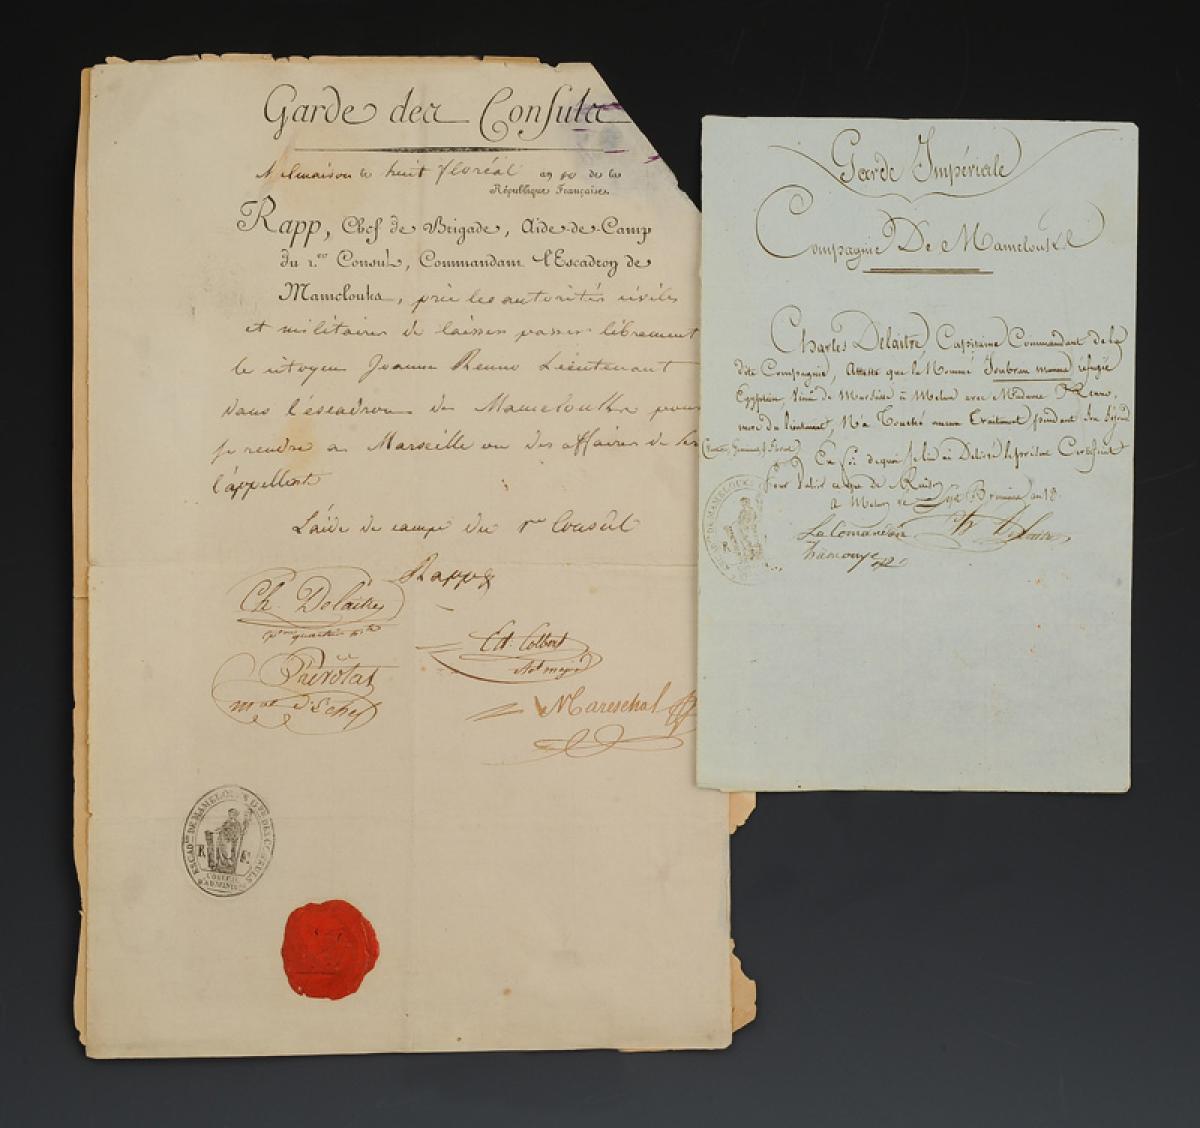 Garde des Consuls
Malmaison le huit floréal an 10 de la
République Française.
Rapp, Chef de Brigade, Aide-de-Camp
du 1.er Consul, Commandant l'Escadron de
Mamelouks, prie les autorités civiles
et militaires de laisser passer librement
le citoyen Joanne Renno Lieutenant
dans l'escadron des Mameloukks pour
se rendre a Marseille ou des affaires de
l'appellent
L'aide de camp du 1er Consul
Rapp
Ch. Delaitre
Ed. Colbert
Prévolat
Mareschal
ESCAD.ON DE MAMELOUKS G.DE DES CONSULS
R F
CONSEIL
D'ADMINISTR.
Garde Impériale
Compagnie De Mamelouks
Charles Delaitre, Capitaine Commandant de la
dite Compagnie, Atteste que le Nommé Joubran réfugié
Egyptien, venu de Marseille à Melun avec Madame Renno,
mere du lieutenant, N'a Touché aucun Traitement pendant son Séjour
En foi de quoi je lui ai Délivré le présent Certificat
Pour Valoir ce que de Raison
a Melun le Sept Brumaire an 13.
Ch Delaitre